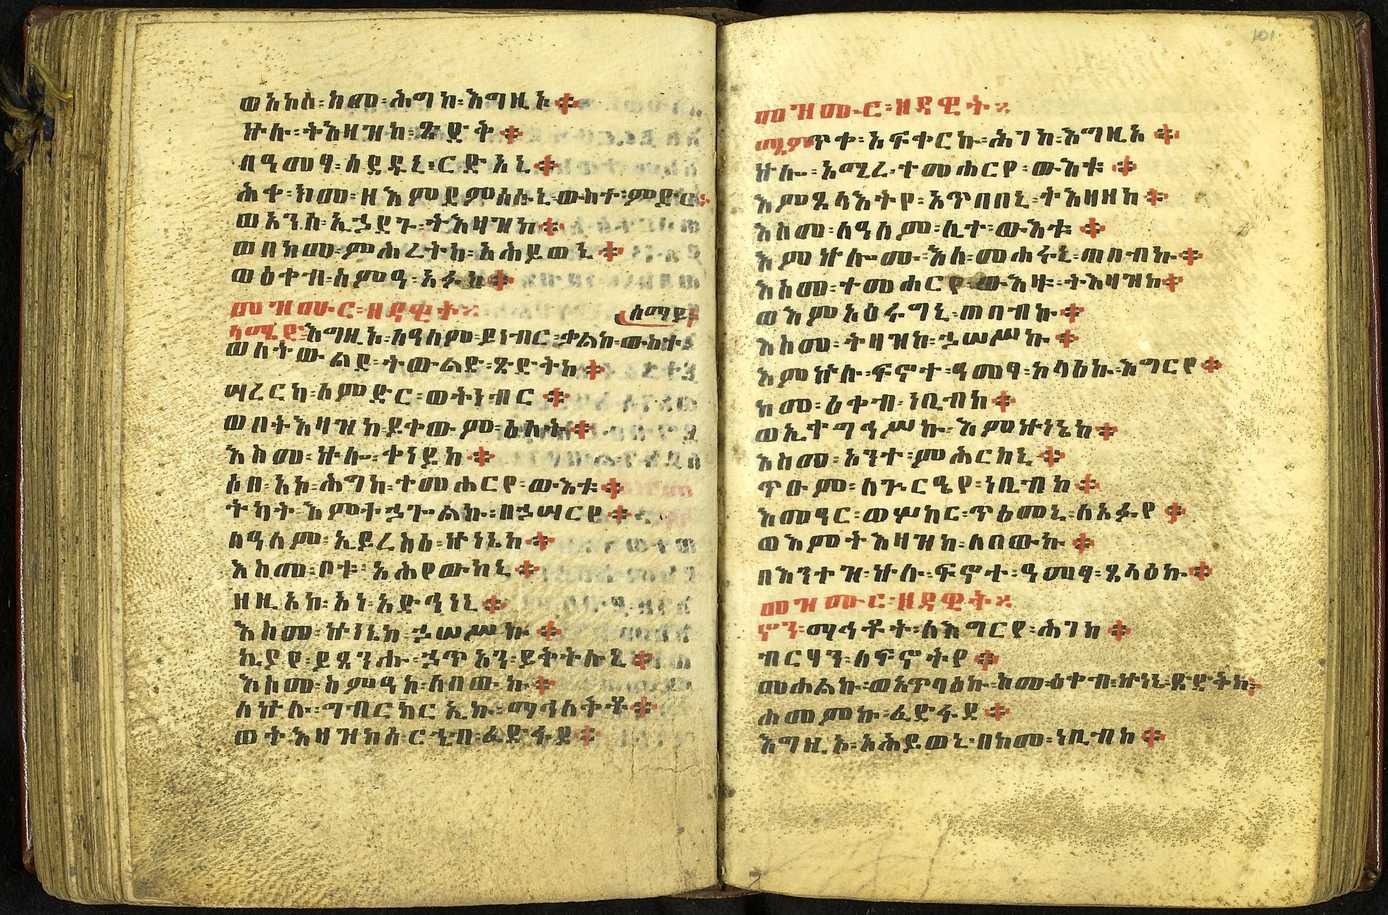 ወአኮሰ፡ከመ፡ሕግከ፡እግዚኦ።
ኵሉ፡ትእዛዝከ፡ጽድቅ።
በዓመፃ፡ሰደዱኒ፡ርድአኒ።
ሕቀ፡ክመ፡ዘእምደምሰሱኒ፡ውስተ፡ምድር።
ወአንሰ፡ኢኃደጉ፡ትእዛዝከ።
ወበከመ፡ምሕረትከ፡አሕይወኒ።
ወዕቀብ፡ስምዓ፡አፉከ።
መዝሙር፡ዘዳዊት፨ ሰማይ፤
ላሜድ፡እግዚኦ፡ለዓለም፡ይነብር፡ቃልከ፡ውስተ፡
ወለትውልደ፡ትውልድ፡ጽድቅከ።
ሣረርካ፡ለምድር፡ወትነብር።
ወበትእዛዝከ፡ይቀውም፡ዕለት።
እስመ፡ኵሉ፡ቀነይከ።
ሶበ፡አኮ፡ሕግከ፡ተመሐርየ፡ውእቱ።
ትካት፡እምተኃጐልኩ፡በኃሣርየ።
ለዓለም፡ኢይረስዕ፡ኵነኔከ።
እስመ፡ቦቱ፡አሕየውከኒ።
ዘዚአከ፡አነ፡አድኅነኒ።
እስመ፡ኵነኔከ፡ኃሠሥኩ።
ኪያየ፡ይጸንሑ፡ኃጥአን፡ይቅትሉኒ።
እስመ፡ስምዓከ፡ለበውኩ።
ለኵሉ፡ግብር፡ርኢኩ፡ማኅለቅቶ።
ወትእዛዝከሰ፡ርሒብ፡ፈድፋደ።
101
መዝሙር፡ዘዳዊት፨
ሜምጥቀ፡አፍቀርኩ፡ሕገከ፡እግዚኦ።
ኵሎ፡አሚረ፡ተመሐርየ፡ውእቱ።
እምጸላእትየ፡አጥበበኒ፡ትእዛዘከ።
እስመ፡ለዓለም፡ሊተ፡ውእቱ።
እምኵሎሙ፡እለ፡መሐሩኒ፡ጠበብኩ።
እስመ፡ተመሐርየ፡ውእቱ፡ትእዛዝከ።
ወእምአዕሩግኒ፡ጠበብኩ።
እስመ፡ትዛዝከ፡ኃሠሥኩ።
እምኵሉ፡ፍኖተ፡ዓመፃ፡ከላዕኩ፡እግርየ።
ከመ፡ዕቀብ፡ነቢብከ።
ወኢተግኅሥኩ፡እምኵነኔከ።
እስመ፡አንተ፡ምሕርከኒ።
ጥዑም፡ለጕርዔየ፡ነቢብከ።
እመዓር፡ወሦከር፡ጥዕመኒ፡ለአፉየ።
ወእምትእዛዝከ፡ለበውኩ።
በእንተዝ፡ኵሉ፡ፍኖተ፡ዓመፃ፡ጸላዕኩ።
መዝሙር፡ዘዳዊት፨
ኖን፡ማኅቶት፡ለእግርየ፡ሕገከ።
ብርሃን፡ለፍኖትየ።
መሐልኩ፡ወአጥባዕኩ፡ከመ፡ዕቀብ፡ኵነኔ፡ጽድቅከ።
ሐመምኩ፡ፈድፋደ።
እግዚኦ፡አሕይወኒ፡በከመ፡ነቢብከ።